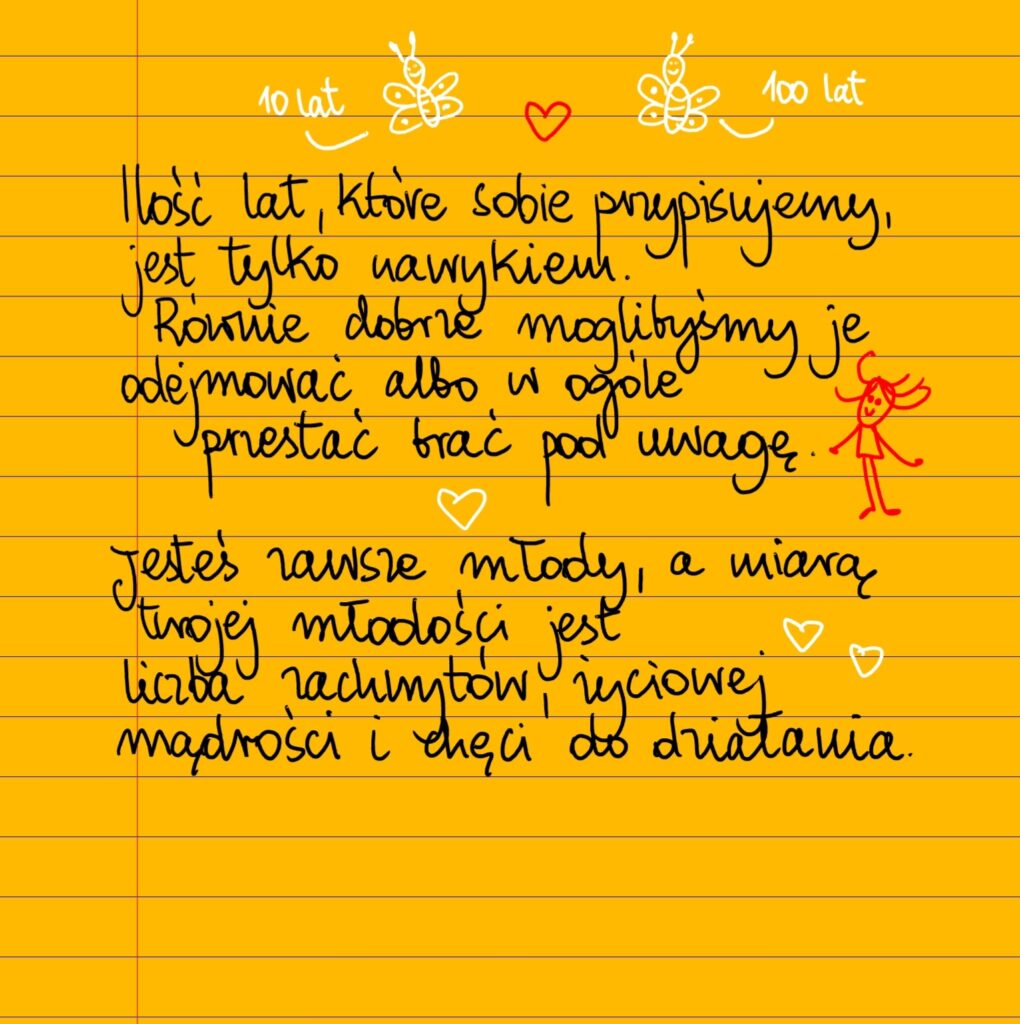 10 lat
100 lat
Ilość lat, które sobie przypisujemy,
jest tylko nawykiem.
Równie dobrze moglibyśmy je
odejmować albo w ogóle
przestać brać pod uwagę.
Jesteś zawsze młody, a miarą
twojej młodości jest
liczba zachwytów, życiowej
mądrości i chęci do działania.